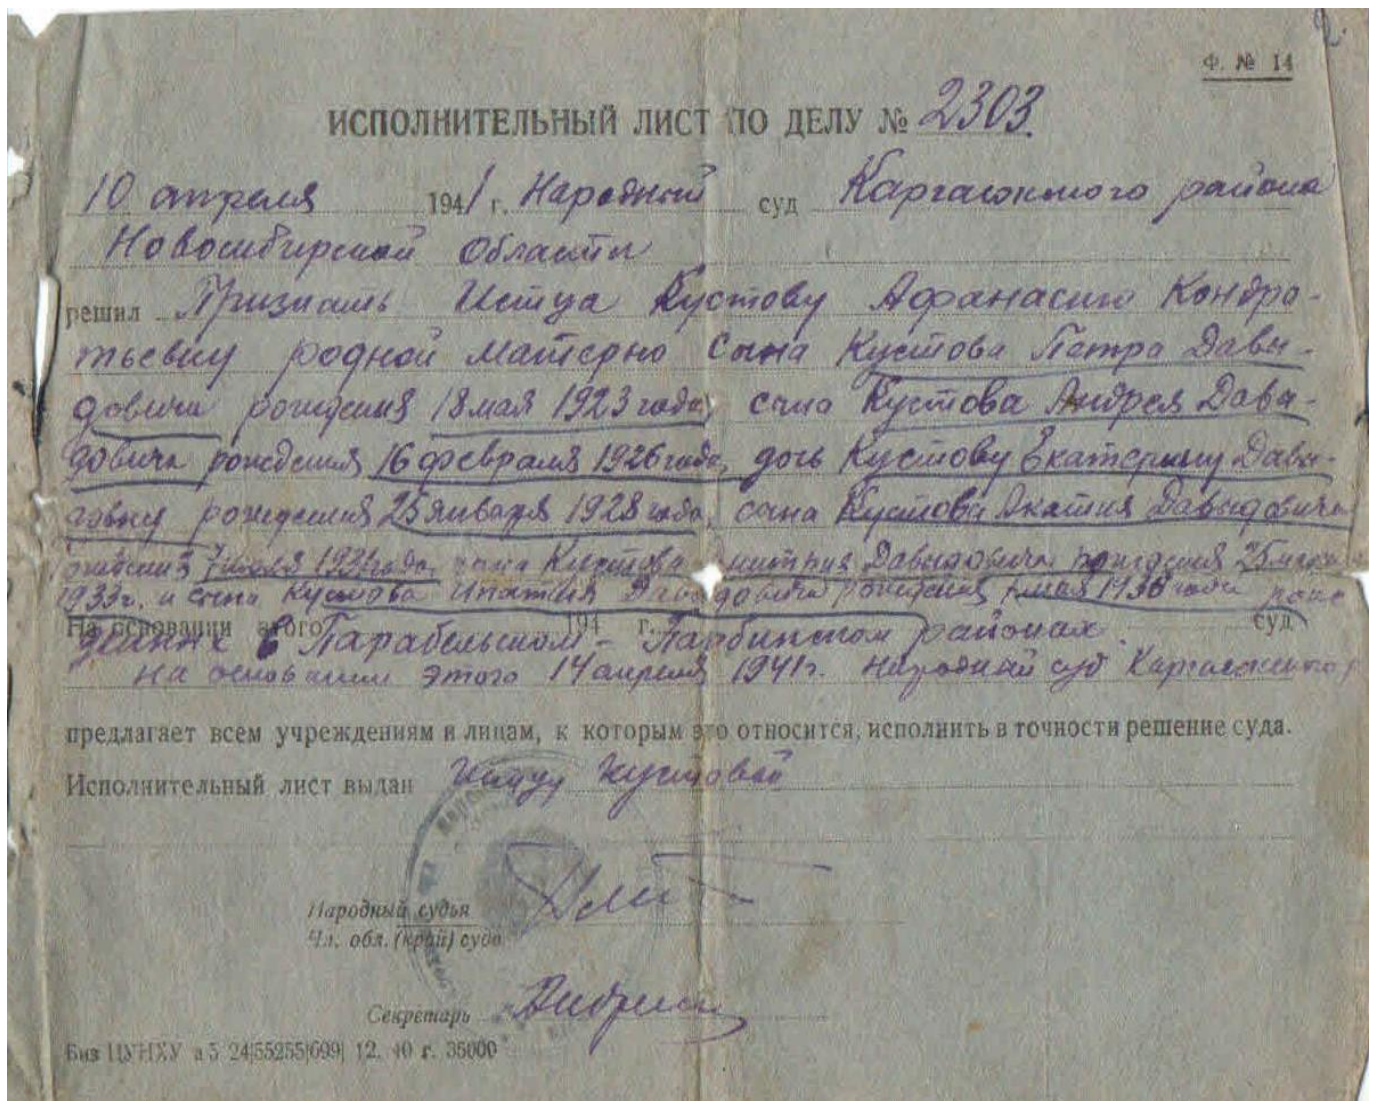 Ф. № 14
ИСПОЛНИТЕЛЬНЫЙ ЛИСТ ПО ДЕЛУ № 2303.
10 апреля 1941 г. Народный суд Каргасокского района
Новосибирской Области
решил Признать Истца Кустову Афанасию Кондра-
тьевну родной матерью сына Кустова Петра Давы-
довича рождения 18 мая 1923 года, сына Кустова Андрея Давы-
довича рождения 16 февраля 1926 года, дочь Кустову Екатерину Давы-
довну рождения 25 января 1928 года, сына Кустова Давыдовича
рождения 7 1931 года, сына Кустова Дмитрия Давыдовича рождения 25
1933г. и сына Кустова Ипатия Давыдовича рождения мая 1936 года рож
На основании этого 194 г. суд
денных в Парабельском - Парбинском районах.
На основании этого 14 апреля 1941г. Народный суд Каргасокского р
предлагает всем учреждениям и лицам, к которым это относится, исполнить в точности решение суда.
Исполнительный лист выдан Истцу Кустовой
Народный судья
Чл. обл. (край) суда
Секретарь
Биз ЦУНХУ а 5 24|55255|699| 12. 40 г. 35000